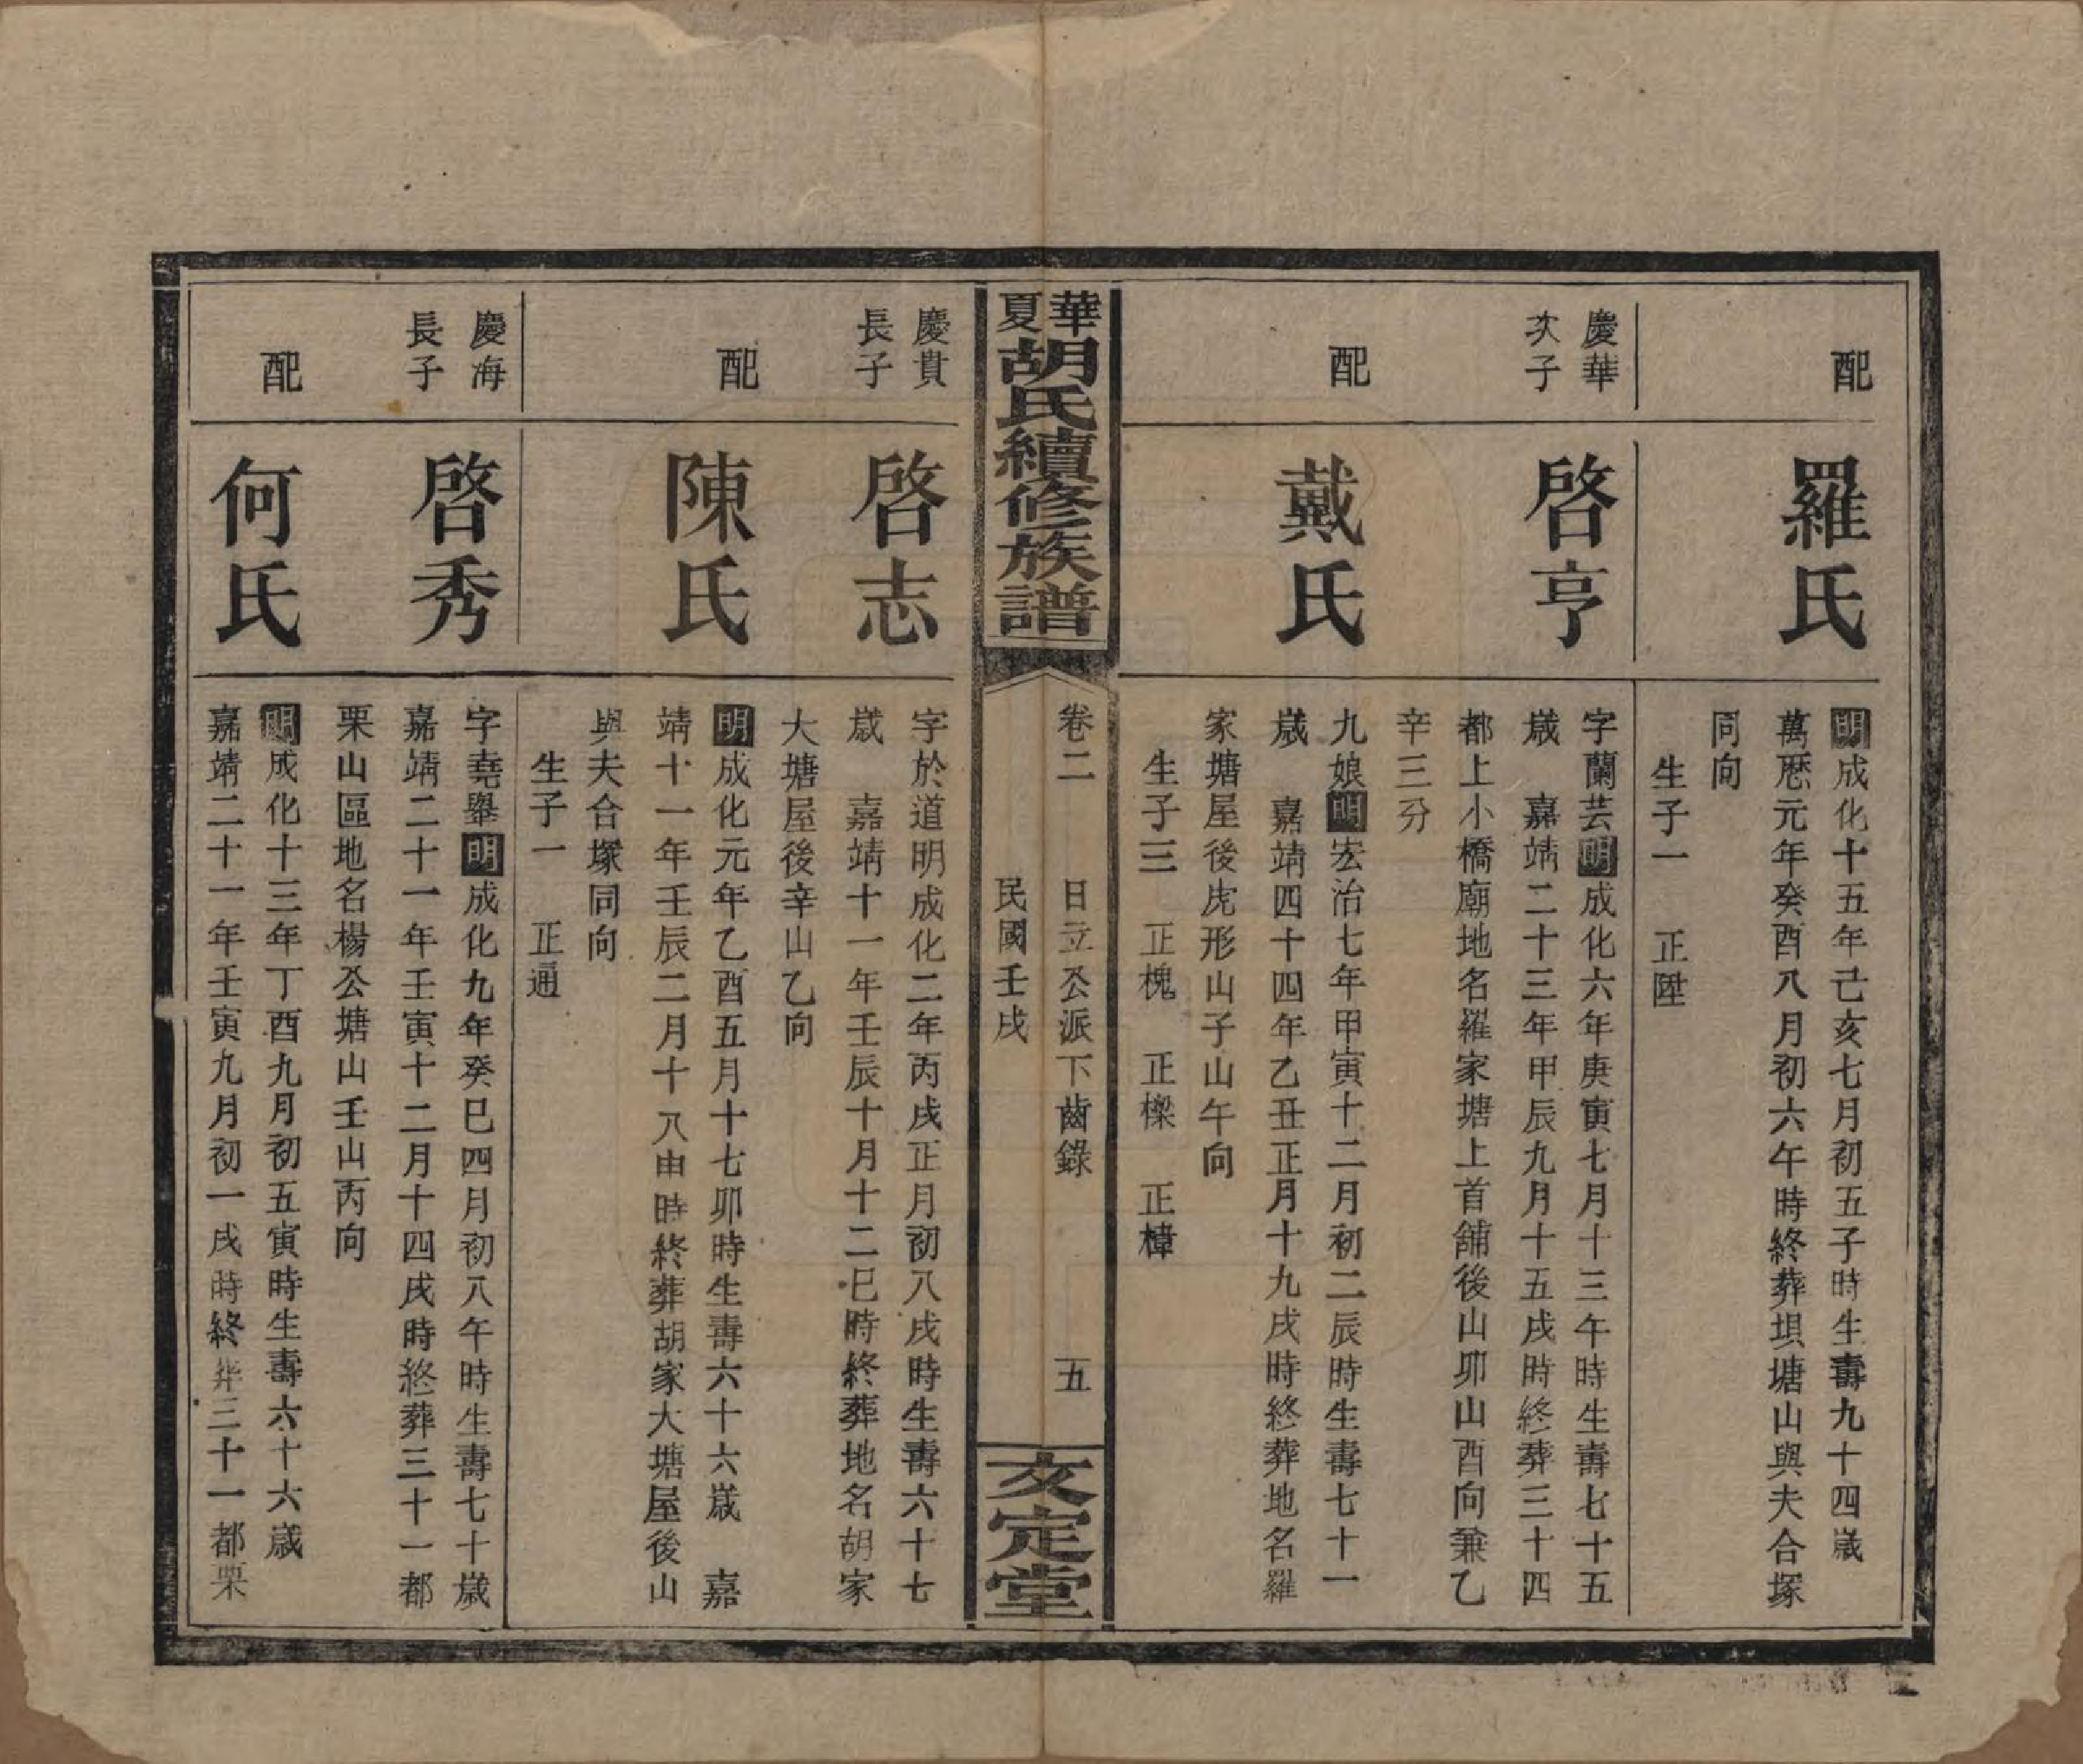 配
羅氏
明成化十五年己亥七月初五子時生壽九十四歲
萬厯元年癸酉八月初六午時終葬垻塘山與夫合塚
同向
生子一 正陞
慶華
次子
啓亨
字蘭芸明成化六年庚寅七月十三午時生壽七十五
歲 嘉靖二十三年甲辰九月十五戌時終葬三十四
都上小橋廟地名羅家塘上首舖後山卯山酉向兼乙
辛三分
配
戴氏
九娘明宏治七年甲寅十二月初二辰時生壽七十一
歲 嘉靖四十四年乙丑正月十九戌時終葬地名羅
家塘屋後虎形山子山午向
生子三 正槐 正樑 正樟
華夏胡氏續修族譜
卷二 日立公派下齒錄 五
民國壬戌
文定堂
慶貴
長子
啓志
字於道明成化二年丙戌正月初八戌時生壽六十七
歲 嘉靖十一年壬辰十月十二巳時終葬地名胡家
大塘屋後辛山乙向
配
陳氏
明成化元年乙酉五月十七卯時生壽六十六歲 嘉
靖十一年壬辰二月十八由時終葬胡家大塘屋後山
與夫合塚同向
生子一 正通
慶海
長子
啓秀
字堯舉明成化九年癸巳四月初八午時生壽七十歲
嘉靖二十一年壬寅十二月十四戌時終葬三十一都
栗山區地名楊公塘山壬山丙向
配
何氏
明成化十三年丁酉九月初五寅時生壽六十六歲
嘉靖二十一年壬寅九月初一戌時終葬三十一都栗